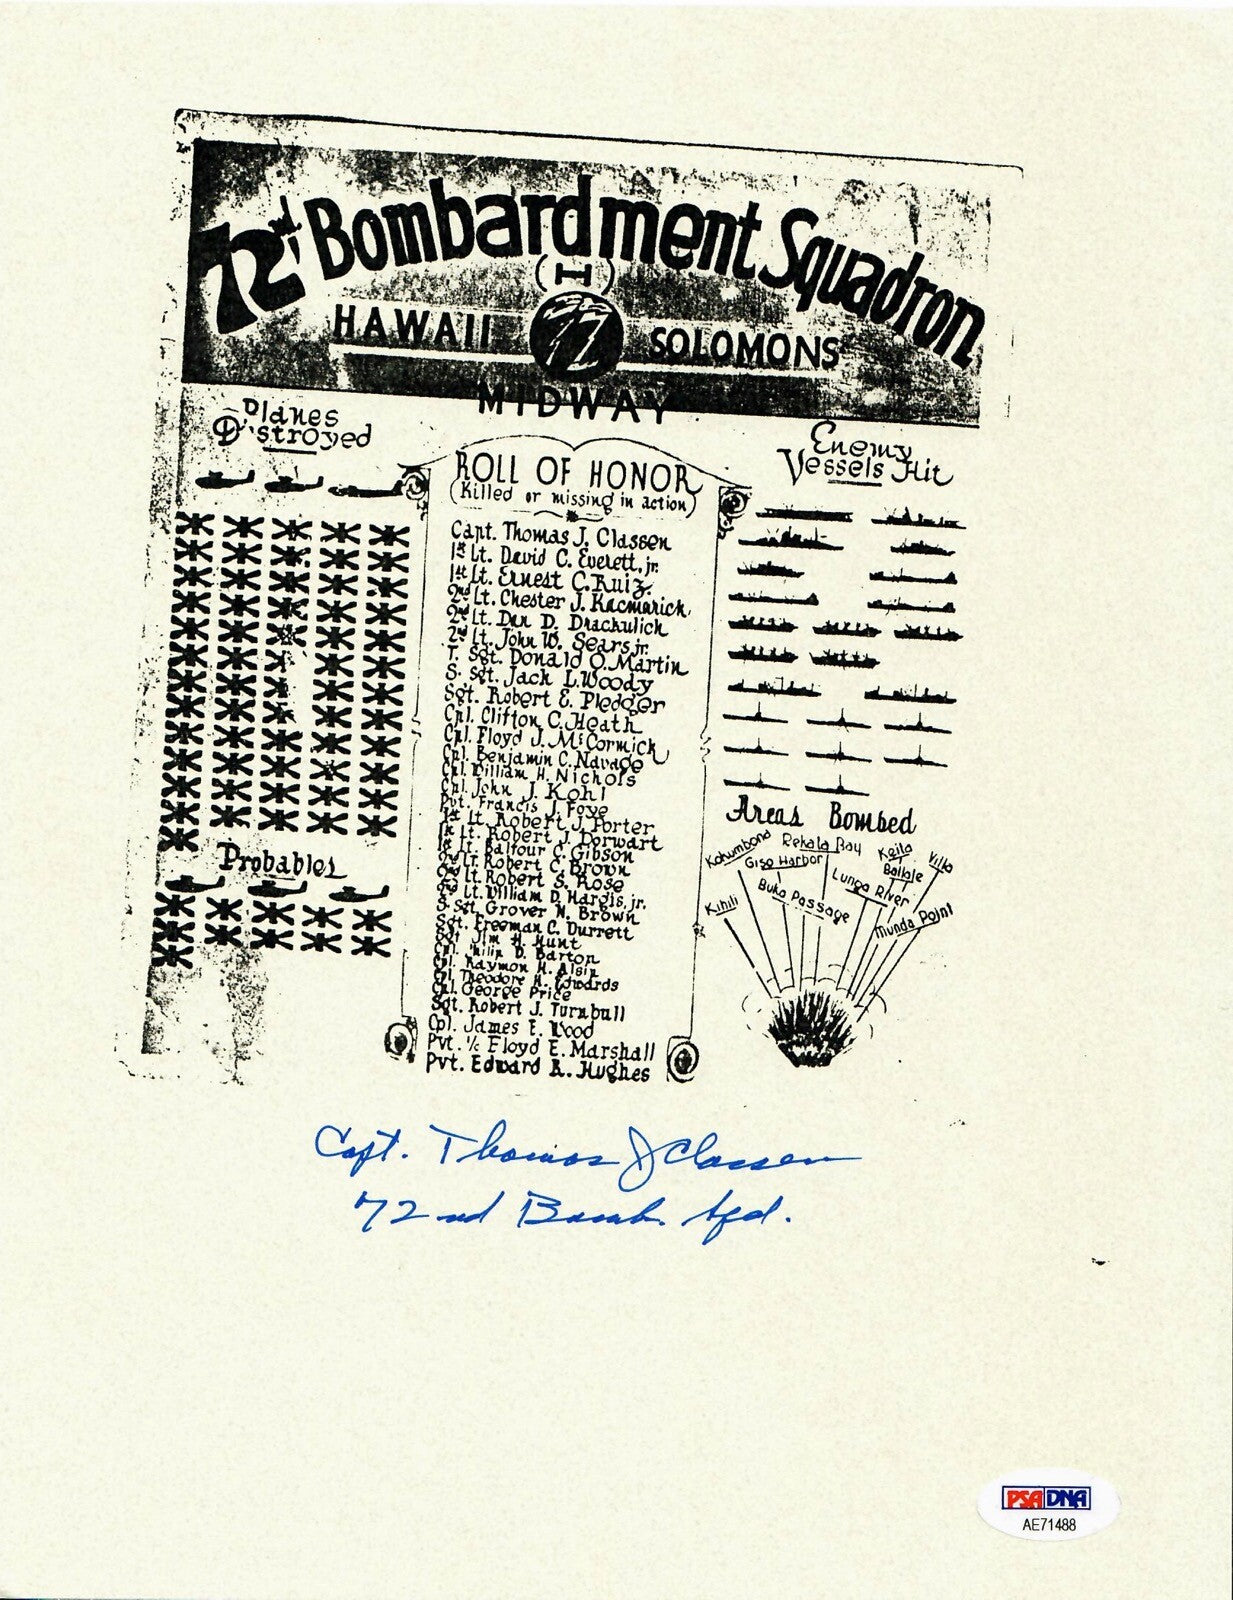 72nd Bombardment Squadron
(H)
HAWAII 72 SOLOMONS
MIDWAY
Planes
Destroyed
Probables
ROLL OF HONOR
(Killed or missing in action)
Capt. Thomas J. Classen
1st Lt. David C. Everett, jr.
1st Lt. Ernest C. Ruiz.
2nd Lt. Chester J. Kacmarick,
2nd Lt. Dan D. Drachulich
2nd Lt. John W. Sears, jr.
T. Sgt. Donald O. Martin
S. Sgt. Jack L. Woody
Sgt. Robert E. Pledger
Cpl. Clifton C. Heath
Cpl. Floyd J. McCormick
Cpl. Benjamin C. Navage
Cpl. William H. Nichols
Cpl. John J. Kohl
Pvt. Francis J. Foye
1st Lt. Robert J. Porter
1st Lt. Robert J. Dorwart
1st Lt. Balfour C. Gibson
2nd Lt. Robert C. Brown
2nd Lt. Robert S. Rose
2nd Lt. William D. Hargis, jr.
S. Sgt. Grover N. Brown
Sgt. Freeman C. Durrett
Sgt. Jim H. Hunt
Cpl. Philip D. Barton
Cpl. Raymon H. Alsip
Cpl. Theodore H. Edwards
Cpl. George Price
Sgt. Robert J. Turnbull
Cpl. James E. Wood
Pvt. 1/c Floyd E. Marshall
Pvt. Edward R. Hughes
Enemy
Vessels Hit
Areas Bombed
Kahumbona
Rekata Bay
Keila
Villa
Giso Harbor
Ballale
Lunga River
Kihili
Buka Passage
Munda Point
Capt. Thomas J Classen
72nd Bomb. Sqd.
PSA DNA
AE71488